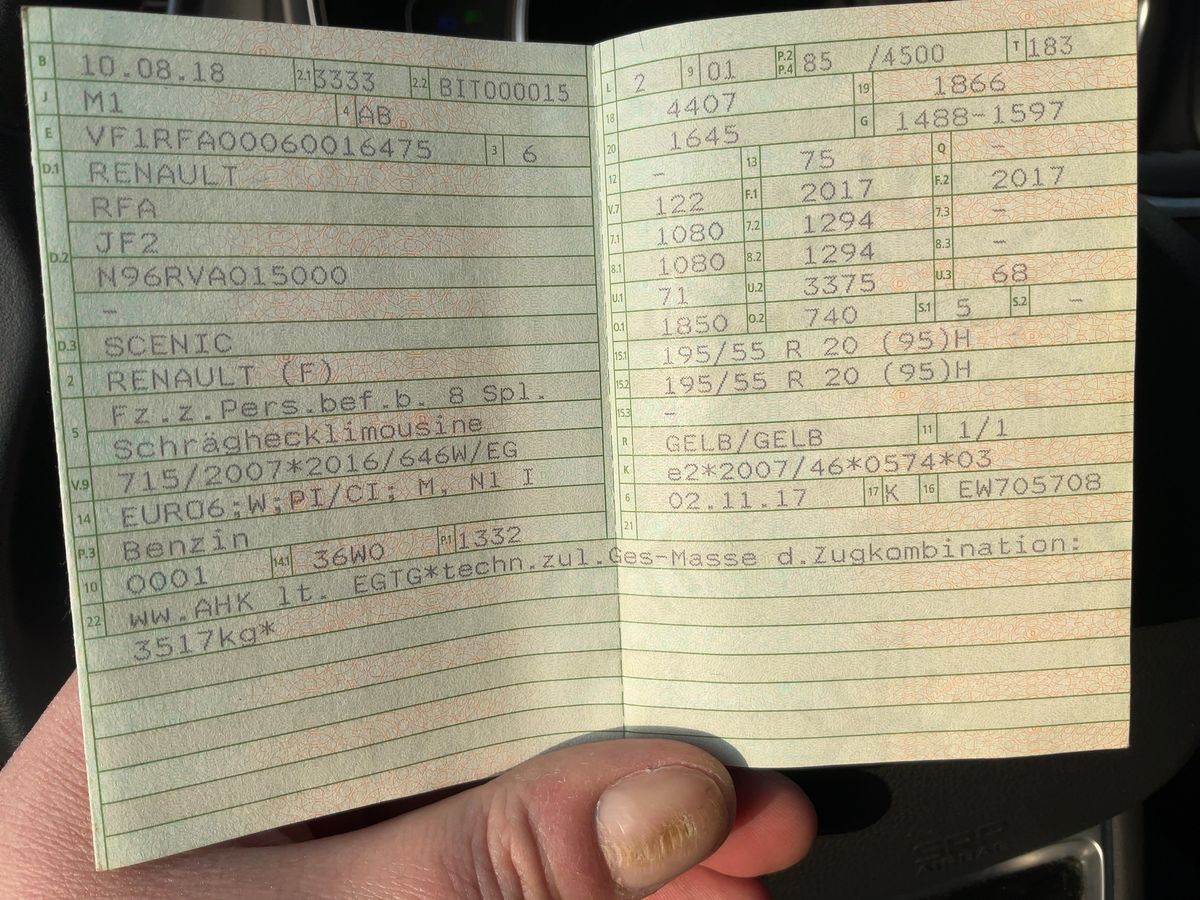 B 10.08.18 2.1 3333 2.2 BIT000015
J M1 4 AB
E VF1RFA00060016475 3 6
D.1 RENAULT
RFA
D.2 JF2
N96RVA015000
–
D.3 SCENIC
2 RENAULT (F)
5 Fz.z.Pers.bef.b. 8 Spl.
Schräghecklimousine
V.9 715/2007*2016/646W/EG
14 EURO6;W;PI/CI; M, N1 I
P.3 Benzin
10 0001 14.1 36W0 P.1 1332
22 ww.AHK lt. EGTG*techn.zul.Ges-Masse d.Zugkombination:
3517kg*
L 2 9 01 P.2 P.4 85 /4500 T 183
18 4407 19 1866
20 1645 G 1488-1597
12 – 13 75 Q –
V.7 122 F.1 2017 F.2 2017
7.1 1080 7.2 1294 7.3 –
8.1 1080 8.2 1294 8.3 –
U.1 71 U.2 3375 U.3 68
O.1 1850 O.2 740 S.1 5 S.2 –
15.1 195/55 R 20 (95)H
15.2 195/55 R 20 (95)H
15.3 –
R GELB/GELB 11 1/1
K e2*2007/46*0574*03
6 02.11.17 17 K 16 EW705708
21
AIRBAG